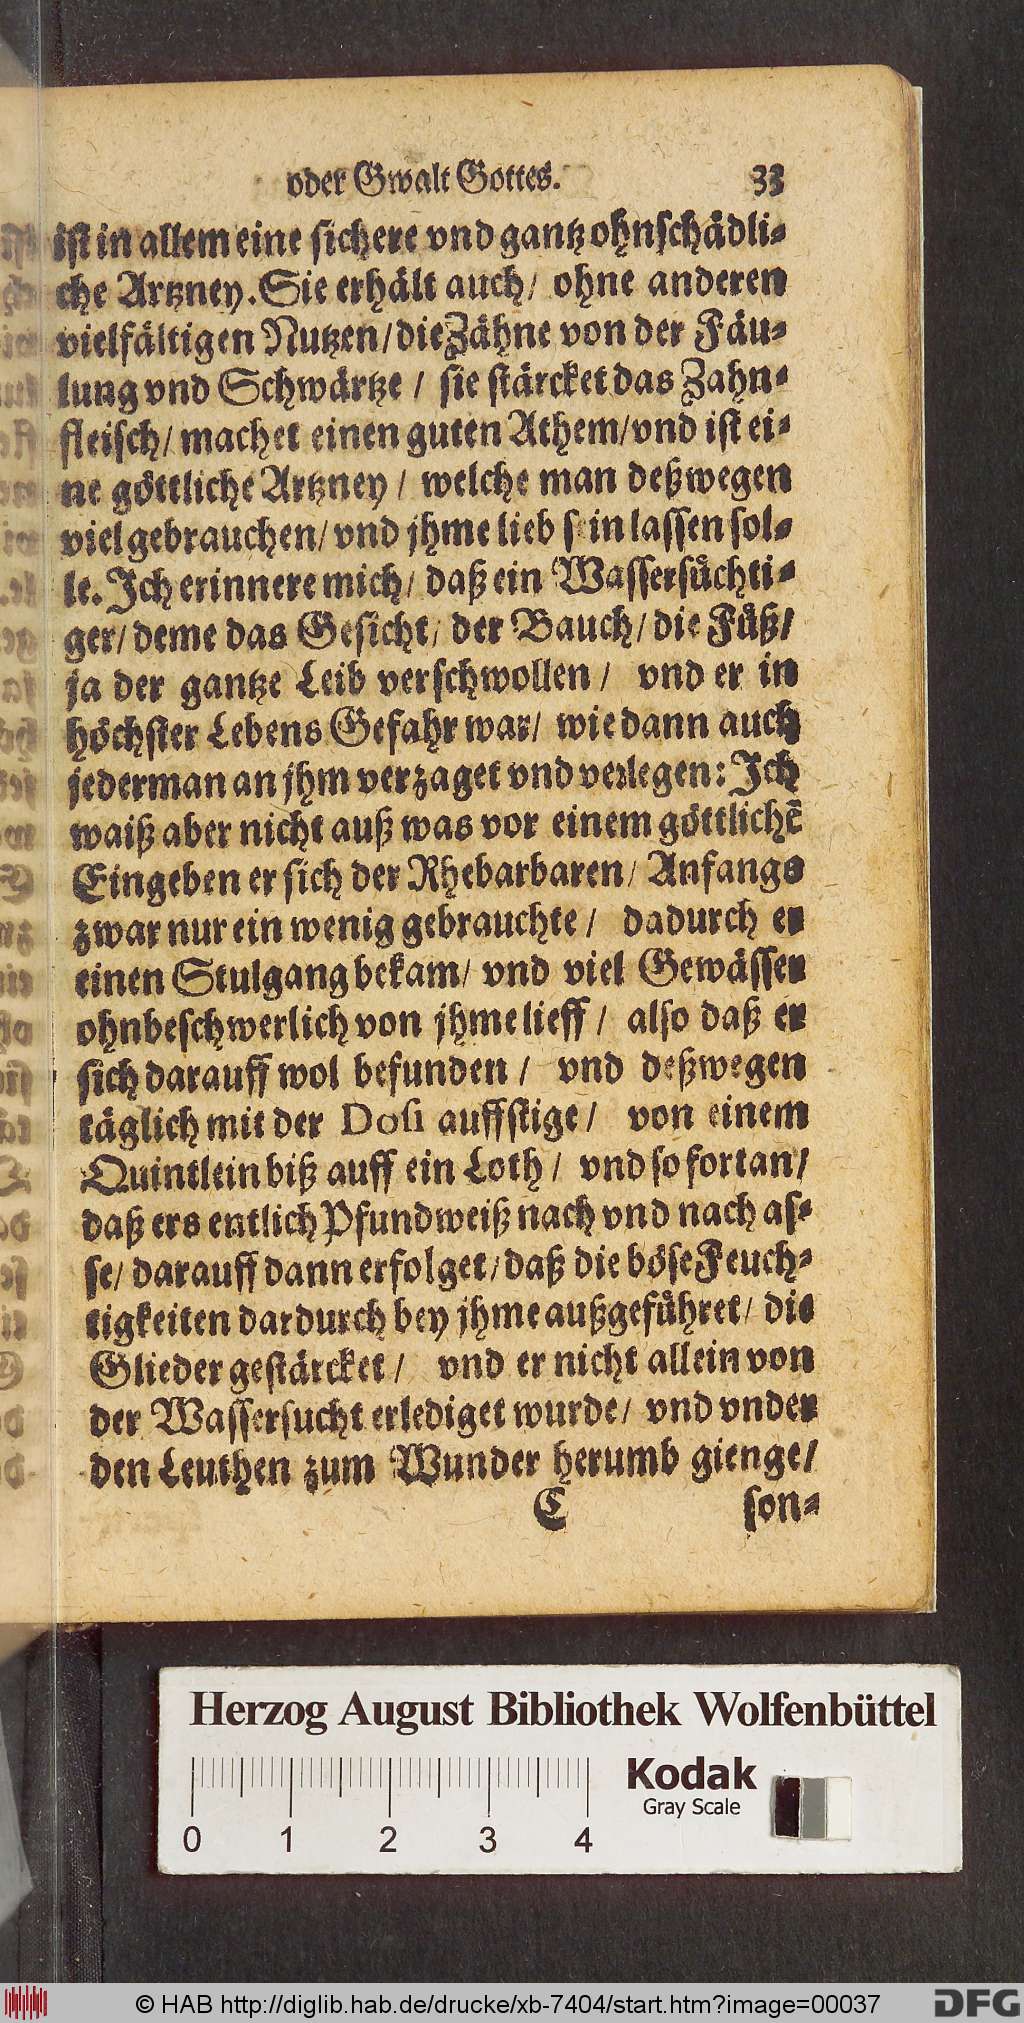 oder Gwalt Gottes. 33
ist in allem eine sichere vnd gantz ohnschädli-
che Artzney. Sie erhält auch/ ohne anderen
vielfältigen Nutzen/ die Zähne von der Fäu-
lung vnd Schwärtze / sie stärcket das Zahn-
fleisch/ machet einen guten Athem/ vnd ist ei-
ne göttliche Artzney / welche man deßwegen
viel gebrauchen/ vnd jhme lieb sein lassen sol-
le. Ich erinnere mich/ daß ein Wassersüchti-
ger/ deme das Gesicht/ der Bauch/ die Füß/
ja der gantze Leib verschwollen / vnd er in
höchster Lebens Gefahr war/ wie dann auch
jederman an jhm verzaget vnd verlegen: Ich
waiß aber nicht auß was vor einem göttlichē
Eingeben er sich der Rhebarbaren/ Anfangs
zwar nur ein wenig gebrauchte / dadurch er
einen Stulgang bekam/ vnd viel Gewässer
ohnbeschwerlich von jhme lieff / also daß er
sich darauff wol befunden / vnd deßwegen
täglich mit der Dosi auffstige / von einem
Quintlein biß auff ein Loth / vnd so fortan/
daß ers entlich Pfundweiß nach vnd nach as-
se/ darauff dann erfolget/ daß die böse Feuch-
tigkeiten dardurch bey jhme außgeführet/ die
Glieder gestärcket / vnd er nicht allein von
der Wassersucht erlediget wurde/ vnd vnder
den Leuthen zum Wunder herumb gienge/
C son-
Herzog August Bibliothek Wolfenbüttel
Kodak
Gray Scale
0 1 2 3 4
© HAB http://diglib.hab.de/drucke/xb-7404/start.htm?image=00037 DFG